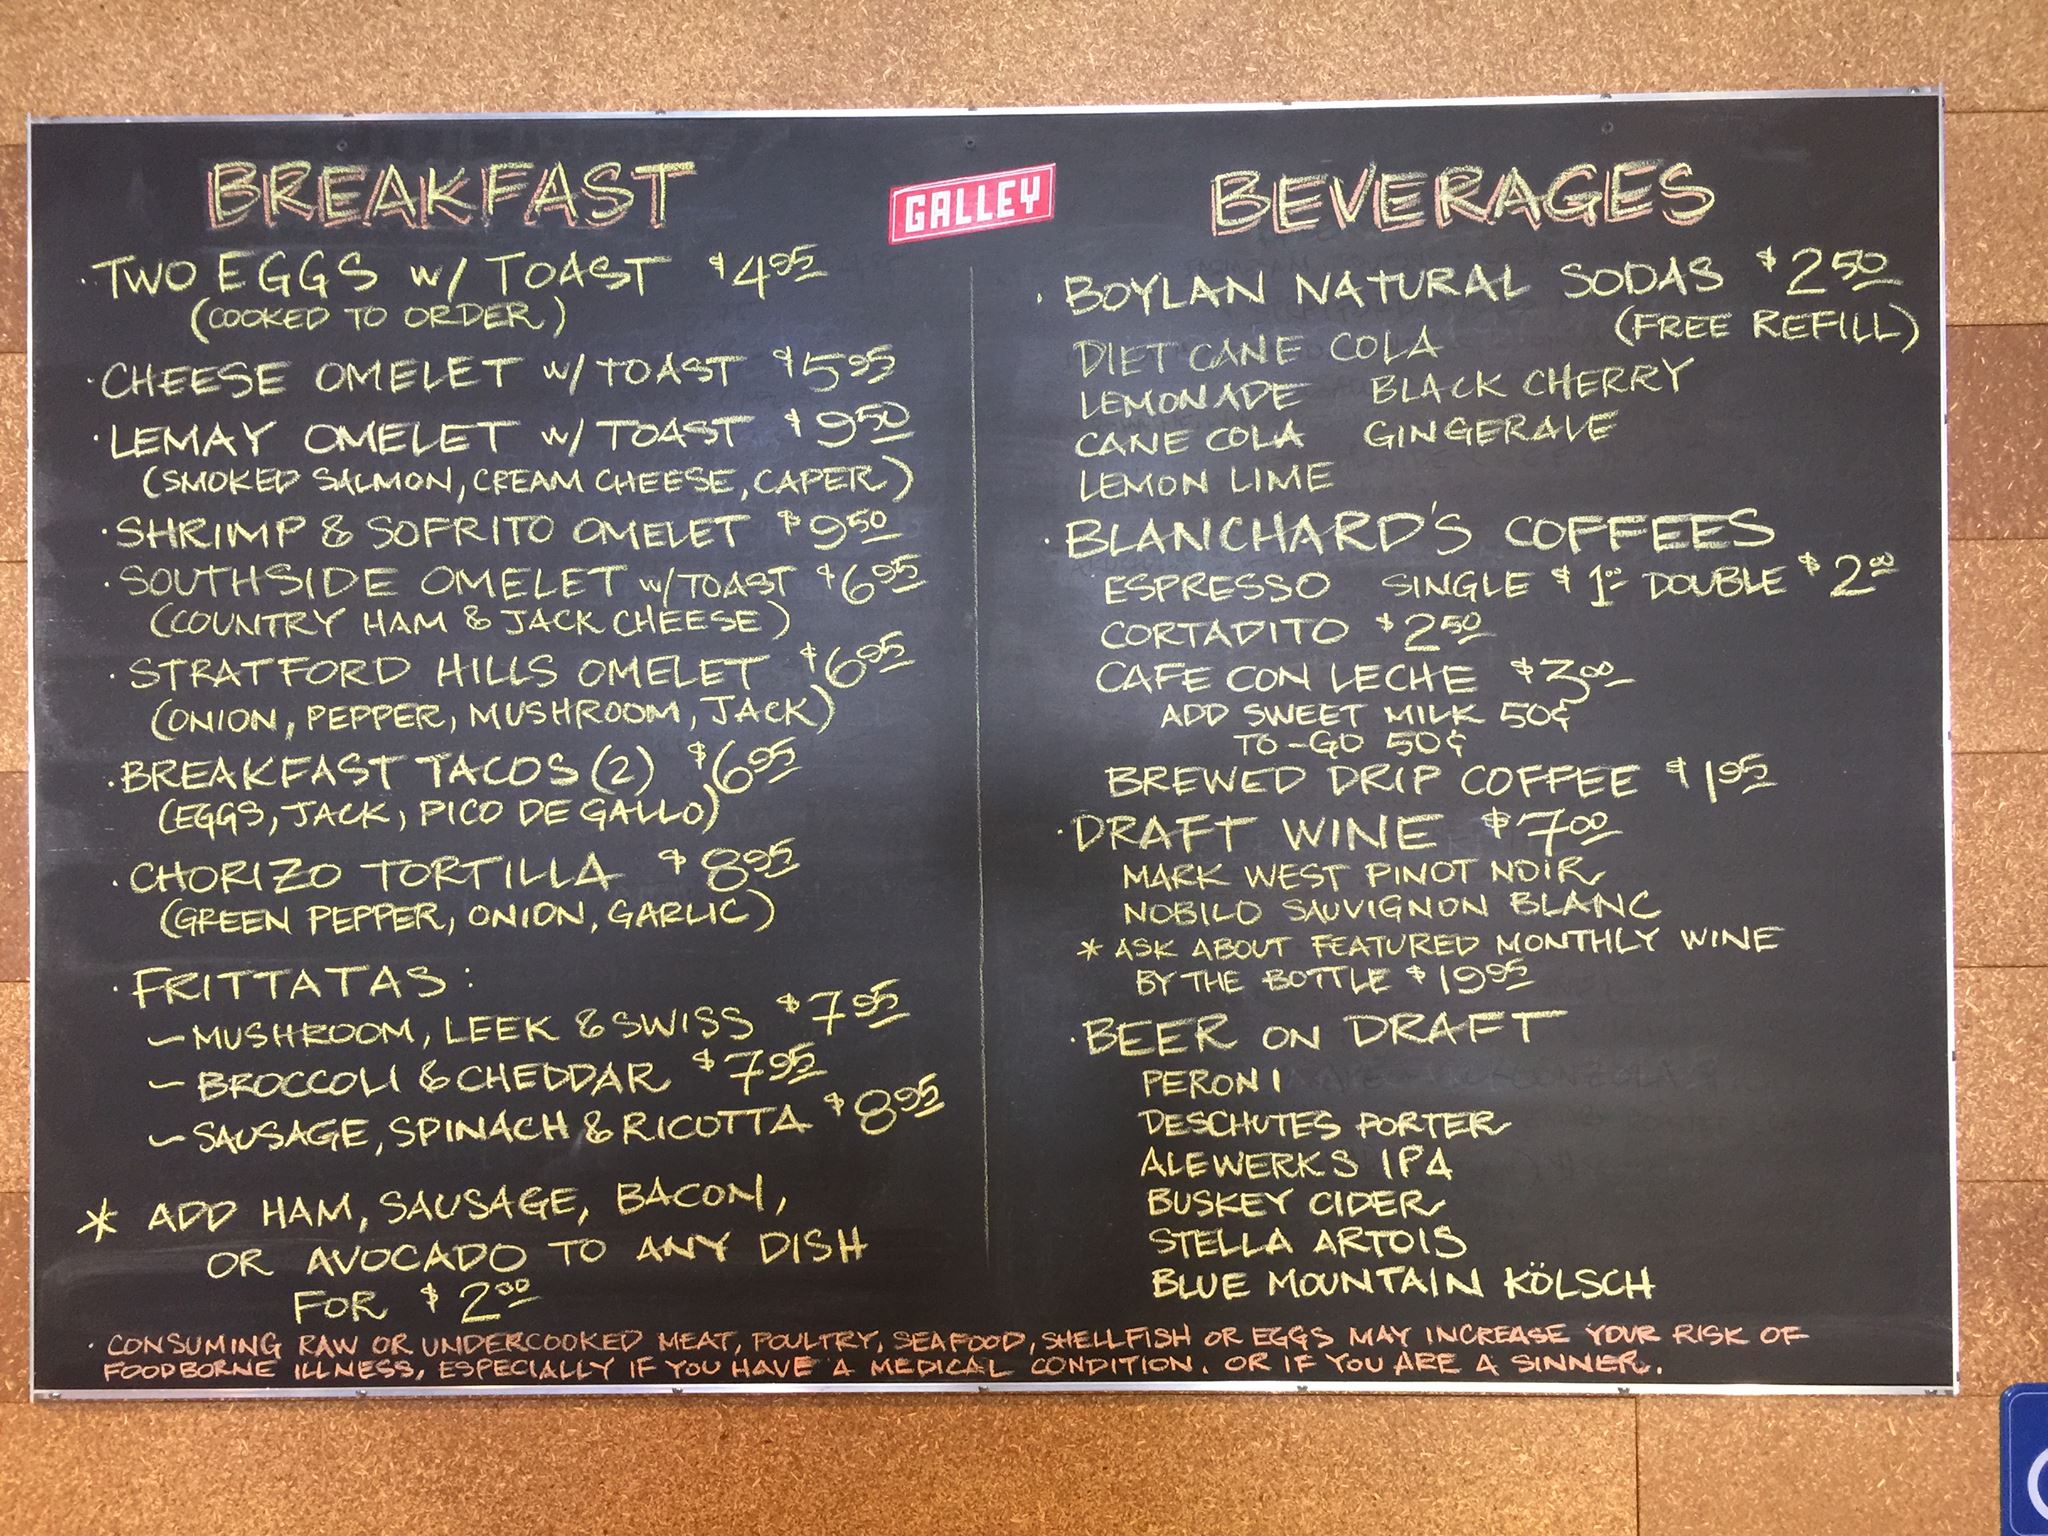 BREAKFAST
· TWO EGGS w/ TOAST $4.95
(COOKED TO ORDER)
· CHEESE OMELET w/ TOAST $5.95
· LEMAY OMELET w/ TOAST $9.50
(SMOKED SALMON, CREAM CHEESE, CAPER)
· SHRIMP & SOFRITO OMELET $9.50
· SOUTHSIDE OMELET w/ TOAST $6.95
(COUNTRY HAM & JACK CHEESE)
· STRATFORD HILLS OMELET $6.95
(ONION, PEPPER, MUSHROOM, JACK)
· BREAKFAST TACOS (2) $6.95
(EGGS, JACK, PICO DE GALLO)
· CHORIZO TORTILLA $8.95
(GREEN PEPPER, ONION, GARLIC)
· FRITTATAS:
– MUSHROOM, LEEK & SWISS $7.95
– BROCCOLI & CHEDDAR $7.95
– SAUSAGE, SPINACH & RICOTTA $8.95
* ADD HAM, SAUSAGE, BACON,
OR AVOCADO TO ANY DISH
FOR $2.00
GALLEY
BEVERAGES
· BOYLAN NATURAL SODAS $2.50
(FREE REFILL)
DIET CANE COLA
LEMONADE BLACK CHERRY
CANE COLA GINGERALE
LEMON LIME
· BLANCHARD'S COFFEES
ESPRESSO SINGLE $1.00 DOUBLE $2.00
CORTADITO $2.50
CAFE CON LECHE $3.00
ADD SWEET MILK 50¢
TO-GO 50¢
BREWED DRIP COFFEE $1.95
· DRAFT WINE $7.00
MARK WEST PINOT NOIR
NOBILO SAUVIGNON BLANC
* ASK ABOUT FEATURED MONTHLY WINE
BY THE BOTTLE $19.95
· BEER ON DRAFT
PERONI
DESCHUTES PORTER
ALEWERKS IPA
BUSKEY CIDER
STELLA ARTOIS
BLUE MOUNTAIN KÖLSCH
· CONSUMING RAW OR UNDERCOOKED MEAT, POULTRY, SEAFOOD, SHELLFISH OR EGGS MAY INCREASE YOUR RISK OF
FOODBORNE ILLNESS, ESPECIALLY IF YOU HAVE A MEDICAL CONDITION. OR IF YOU ARE A SINNER.